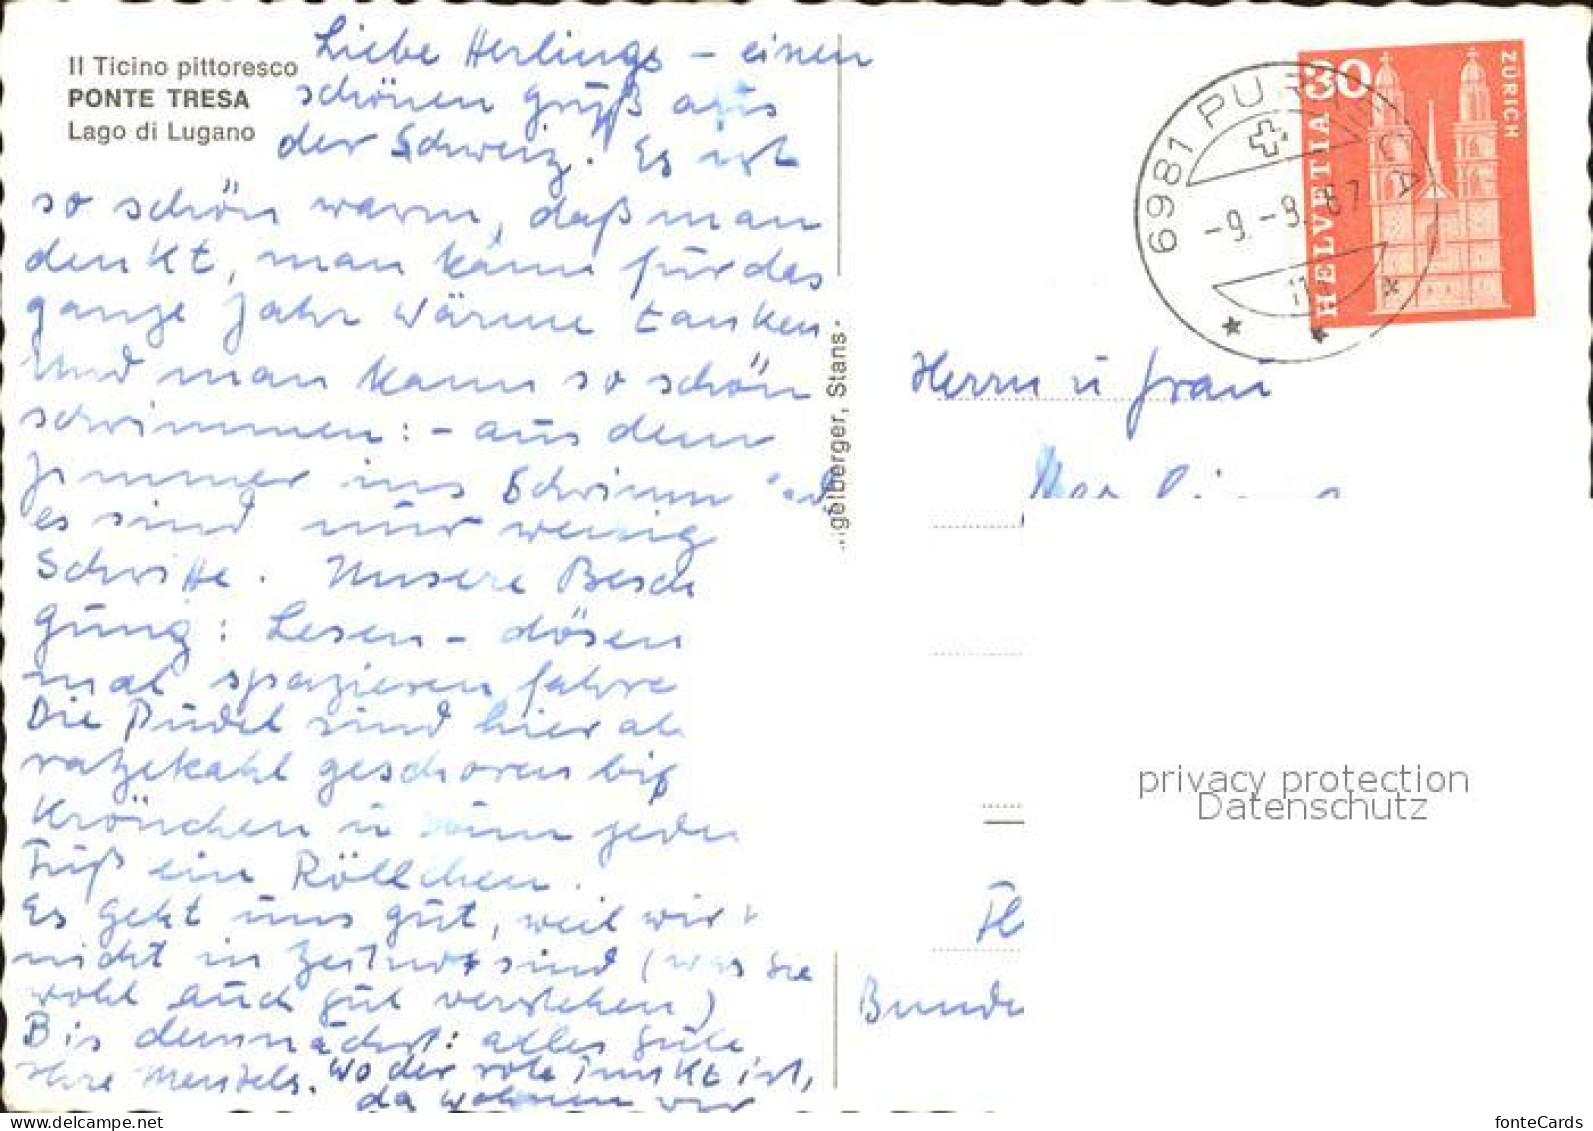 Il Ticino pittoresco
PONTE TRESA
Lago di Lugano
Liebe Herlings - einen
schönen Gruß aus
der Schweiz. Es ist
so schön warm, daß man
denkt, man kann für das
ganze Jahr Wärme tanken.
Und man kann so schön
schwimmen: - aus dem
Zimmer ins Schwimm
es sind nur wenig
Schritte. Unsere Besch
gung: Lesen - dösen
mal spazieren fahre
Die Pudel sind hier
ratzekahl geschoren bis
Krönchen u jede
Fuß ein Röllchen.
Es geht uns gut, weil wir
nicht in Zeitnot sind (was Sie
wohl auch gut verstehen)
Bis demnächst: alles Gute
Ihre Menzels. Wo der rote Punkt ist,
da wohnen wir
gelberger, Stans
HELVETIA 30 ZÜRICH
6981 PUR CA
-9.-9. 67
Herrn u Frau
Bunde
privacy protection
Datenschutz
fonteCards